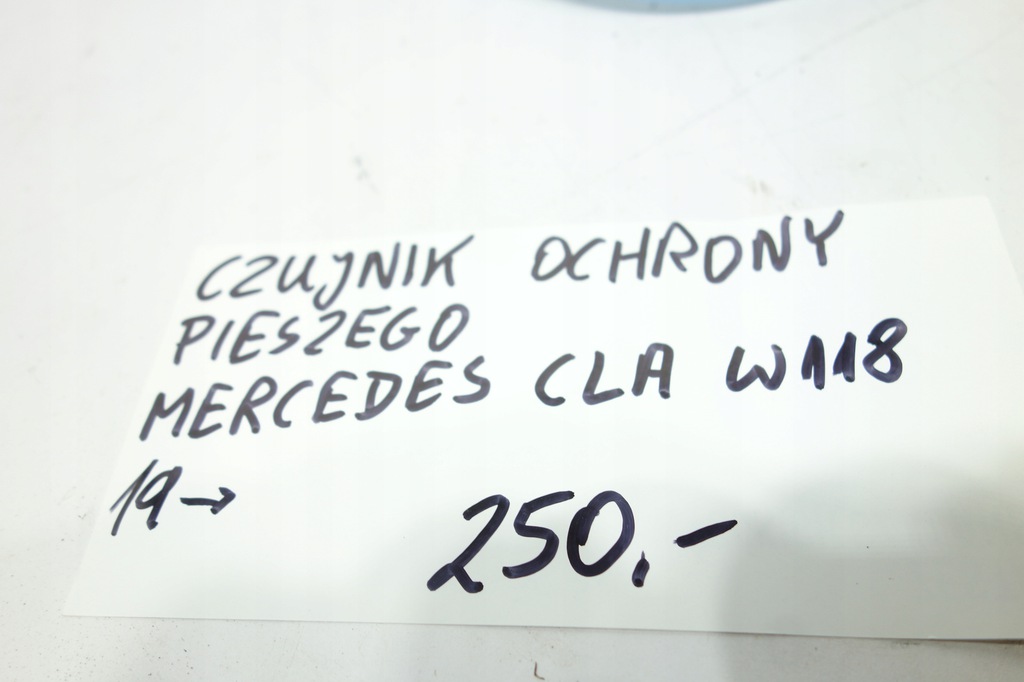 CZUJNIK OCHRONY
PIESZEGO
MERCEDES CLA W118
19→
250,-